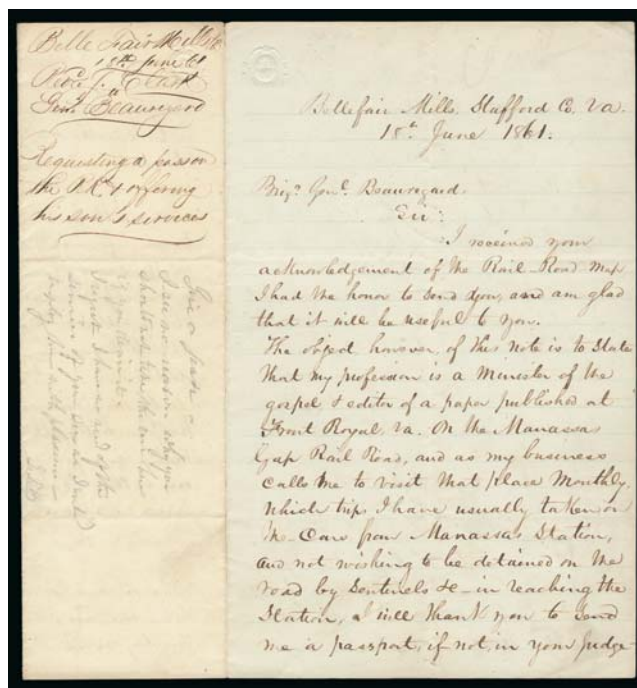 Belle Fair Mills
18th June 61
Revd J. Clark
to
Genl. Beauregard
Requesting a pass on
the R.R. & offering
his son's services
Give a pass
I see no reason why you
should not
if you desire it
services of your son
employ him with pleasure
Bellefair Mills, Stafford Co. Va.
18th June 1861.
Brigr Genl. Beauregard.
Sir:
I received your
acknowledgement of the Rail-Road map
I had the honor to send you, and am glad
that it will be useful to you.
The object however, of this note is to State
that my profession is a Minister of the
gospel & editor of a paper published at
Front Royal, Va. On the Manassas
Gap Rail Road, and as my business
calls me to visit that place Monthly,
which trip I have usually taken on
the Cars from Manassas Station,
and not wishing to be detained on the
road by Sentinels &c in reaching the
Station, I will thank you to send
me a passport, if not, in your Judge-